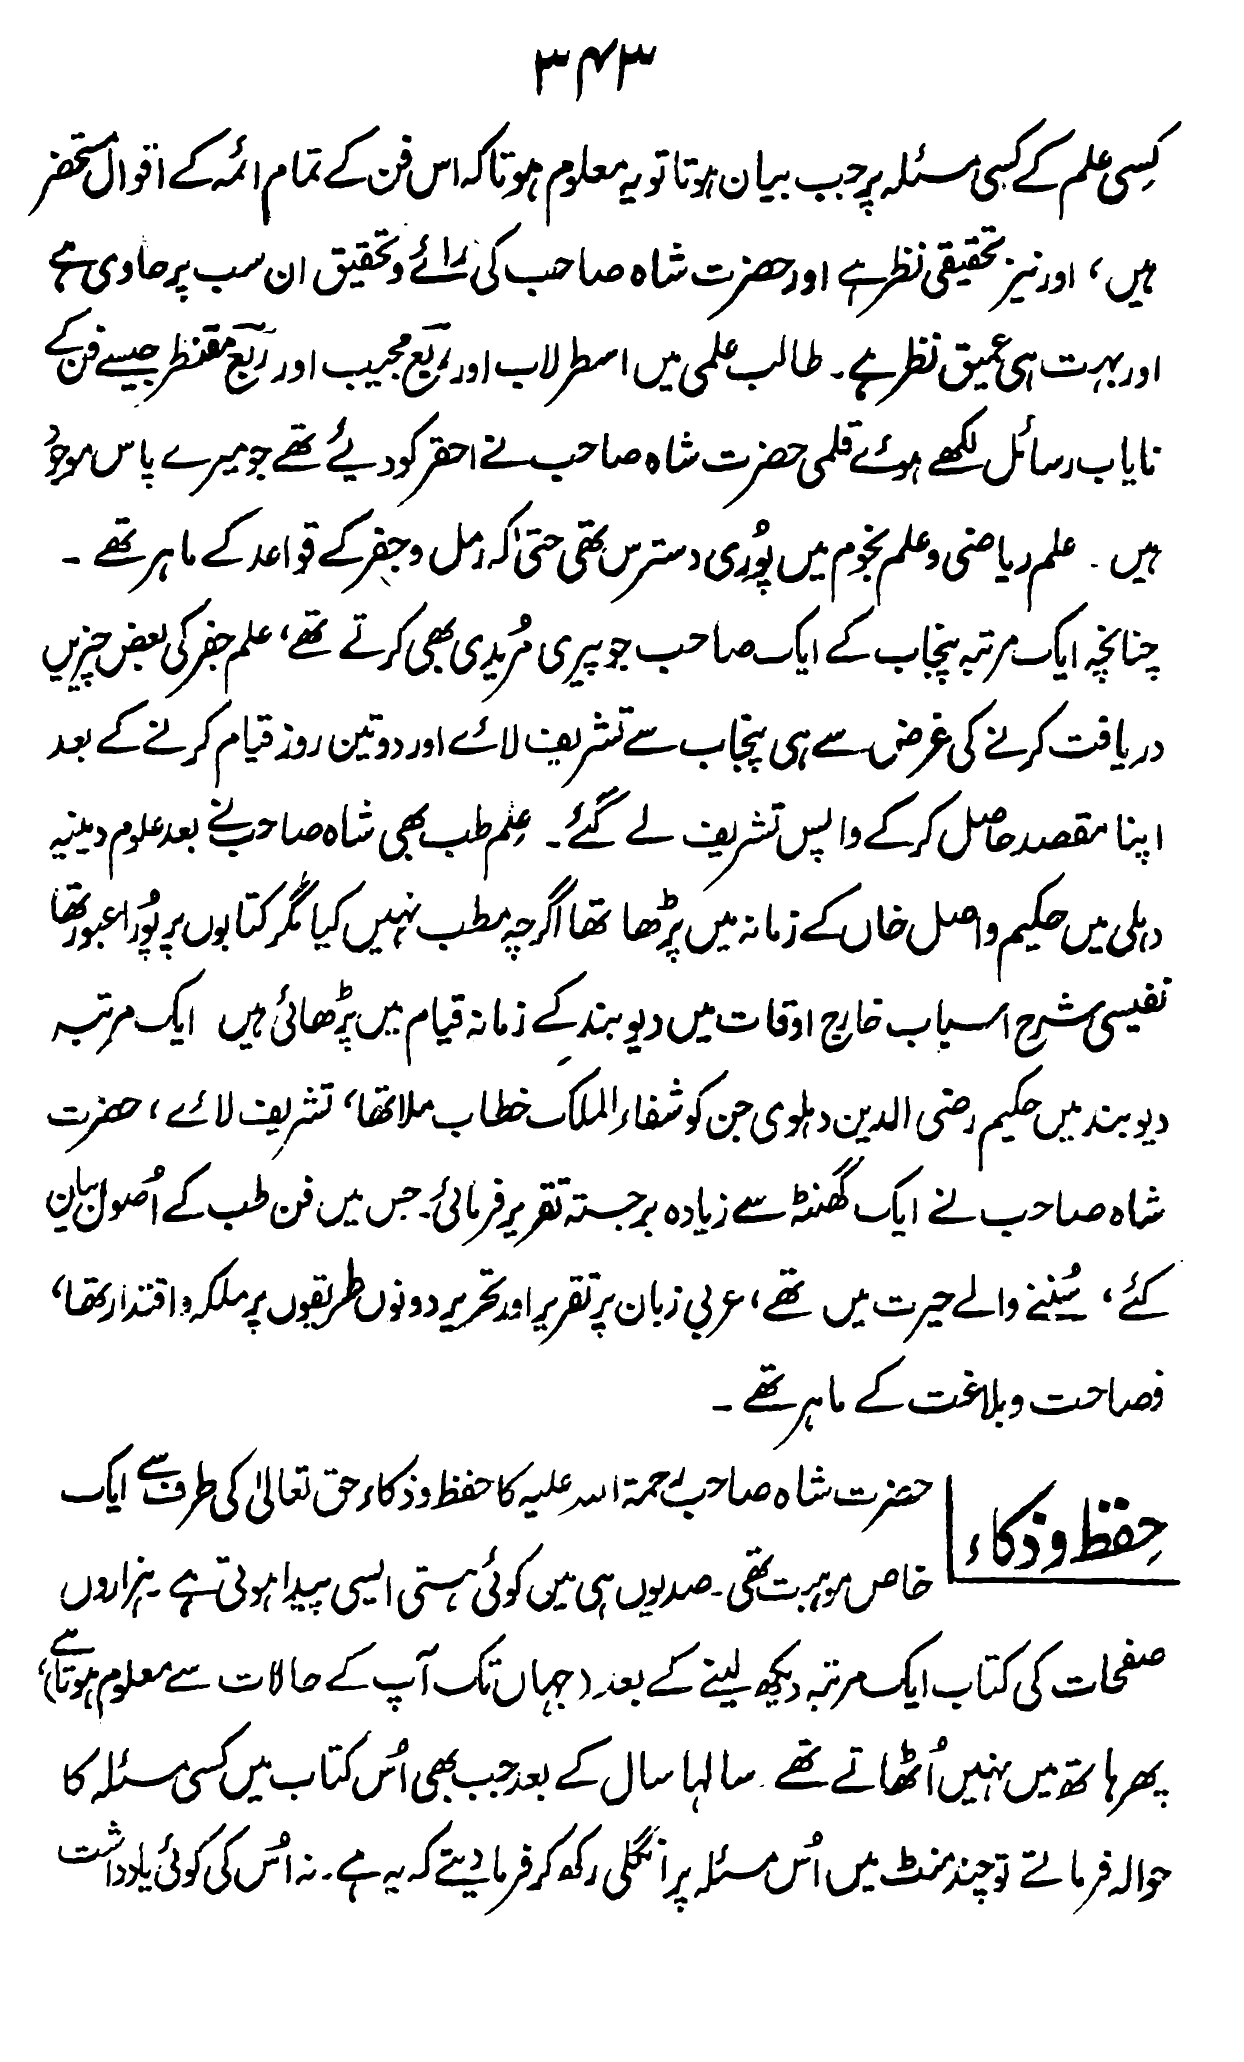 ۳۴۳
کِسی علم کے کسی مسئلہ پر جب بیان ہوتا تو یہ معلوم ہوتا کہ اس فن کے تمام ائمہ کے اقوال مستحضر
ہیں، اور نیز تحقیقی نظر ہے اور حضرت شاہ صاحب کی رائے و تحقیق ان سب پر حاوی ہے
اور بہت ہی عمیق نظر ہے۔ طالب علمی میں اسطرلاب اور ربع مجیب اور ربع مقنطر جیسے فن کے
نایاب رسائل لکھے ہوئے قلمی حضرت شاہ صاحب نے احقر کو دیئے تھے جو میرے پاس موجود
ہیں۔ علم ریاضی و علم نجوم میں پُوری دسترس تھی حتیٰ کہ رمل و جفر کے قواعد کے ماہر تھے۔
چنانچہ ایک مرتبہ پنجاب کے ایک صاحب جو پیری مُریدی بھی کرتے تھے، علم جفر کی بعض چیزیں
دریافت کرنے کی غرض سے ہی پنجاب سے تشریف لائے اور دو تین روز قیام کرنے کے بعد
اپنا مقصد حاصل کر کے واپس تشریف لے گئے۔ عِلم طب بھی شاہ صاحب نے بعد علوم دینیہ
دہلی میں حکیم واصل خاں کے زمانہ میں پڑھا تھا اگرچہ مطب نہیں کیا مگر کتابوں پر پُورا عبور تھا
نفیسی شرح اسباب خارج اوقات میں دیوبند کے زمانہ قیام میں پڑھائی ہیں ایک مرتبہ
دیوبند میں حکیم رضی الدین دہلوی جن کو شفاء الملک خطاب ملا تھا، تشریف لائے، حضرت
شاہ صاحب نے ایک گھنٹہ سے زیادہ برجستہ تقریر فرمائی۔ جس میں فن طب کے اُصول بیان
کئے، سُننے والے حیرت میں تھے، عربی زبان پر تقریر اور تحریر دونوں طریقوں پر ملکہ و اقتدار تھا،
فصاحت و بلاغت کے ماہر تھے۔
حِفظ و ذکاء
حضرت شاہ صاحب رحمۃ اللہ علیہ کا حفظ و ذکاء حق تعالیٰ کی طرف سے ایک
خاص موہبت تھی۔ صدیوں ہی میں کوئی ہستی ایسی پیدا ہوتی ہے۔ ہزاروں
صفحات کی کتاب ایک مرتبہ دیکھ لینے کے بعد (جہاں تک آپ کے حالات سے معلوم ہوتا ہے)،
پھر ہاتھ میں نہیں اُٹھاتے تھے۔ سالہا سال کے بعد جب بھی اُس کتاب میں کسی مسئلہ کا
حوالہ فرماتے تو چند منٹ میں اُس مسئلہ پر انگلی رکھ کر فرما دیتے کہ یہ ہے۔ نہ اُس کی کوئی یادداشت